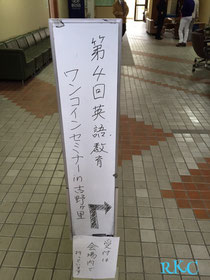 第4回英語教育
ワンコインセミナーin吉野ヶ里
受付は
会場内で
行います
RKC